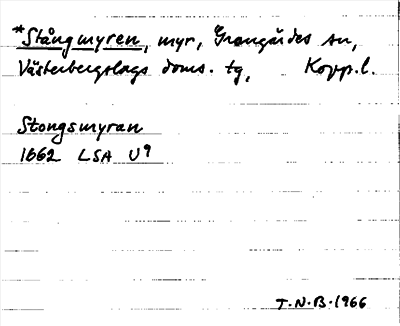 *Stångmyren, myr, Grangärdes sn,
Västerbergslags doms. tg, Kopp.l.
Stongsmyran
1662 LSA U9
T.N.B.1966